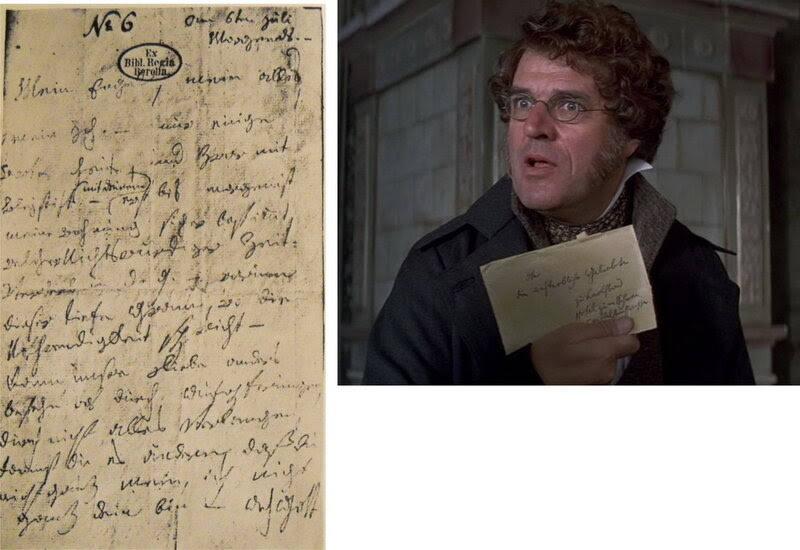 № 6 am 6ten Juli
Morgends. –
Ex
Bibl. Regia
Berolin.
Mein Engel, mein alles
mein Ich. – nur einige
Worte heute, und zwar mit
Bleystift – (mit deinem) erst bis morgen ist
meine Wohnung sicher bestimmt
welcher Nichtswürdiger Zeit-
verderb in d. g. – warum
dieser tiefe Gram, wo die
Nothwendigkeit spricht –
Kann unsre Liebe anders
bestehn als durch Aufopferungen,
durch nicht alles verlangen,
kannst du es ändern, daß du
nicht ganz mein, ich nicht
ganz dein bin – Ach Gott
An
die unsterbliche Geliebte